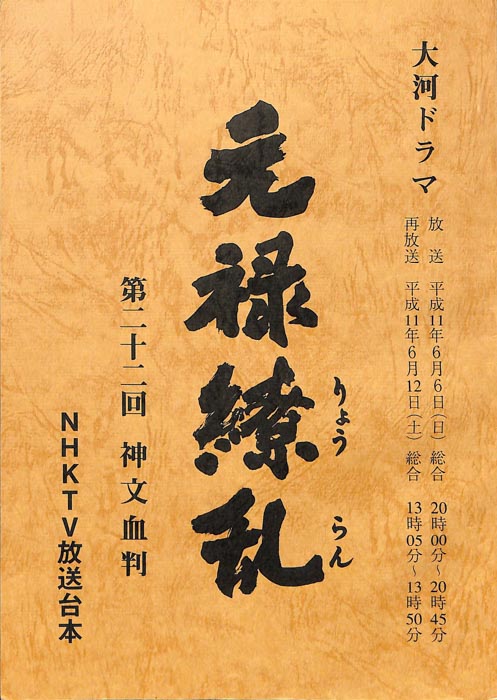 大河ドラマ
放送 平成11年6月6日(日) 総合 20時00分~20時45分
再放送 平成11年6月12日(土) 総合 13時05分~13時50分
元禄繚乱
りょう らん
第二十二回 神文血判
NHKTV放送台本